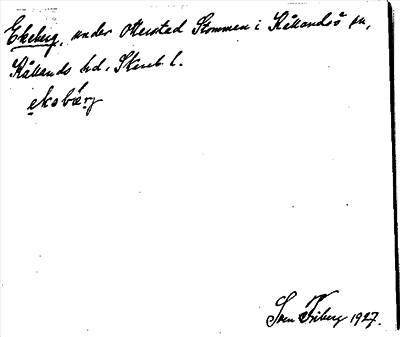 Ekeberg, under Otterstad Stommen i Kållandsö sn,
Kållands hd, Skarab. l.
ekobärg
Sven Friberg 1927.